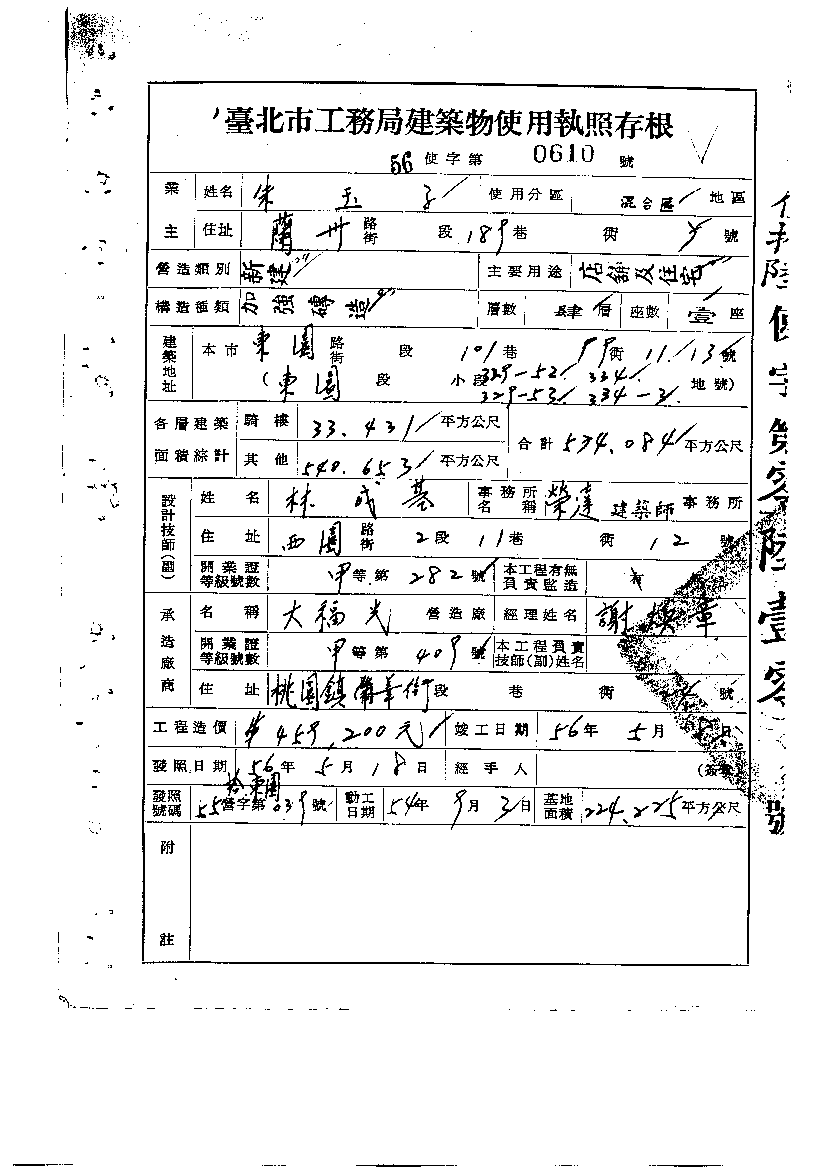 臺北市工務局建築物使用執照存根
56 使字第 0610 號
業主 姓名 朱玉子 使用分區 混合區 地區
住址 蘭州 路街 段 189 巷 街 號
營造類別 新建 主要用途 店舖及住宅
構造種類 加強磚造 層數 肆層 座數 壹座
建築地址 本市 東園 路街 段 101 巷 99 街 11/13 號
(東園 段 小段 329-52/ 334/ 地號)
329-53/ 334-3/
各層建築面積綜計 騎樓 33.431 平方公尺 合計 574.084 平方公尺
其他 540.653 平方公尺
設計技師(副) 姓名 林成基 事務所名稱 榮達 建築師 事務所
住址 西園 路街 2段 11巷 街 12 號
開業證等級號數 甲等第 282 號 本工程有無負責監造 有
承造廠商 名稱 大福光 營造廠 經理姓名 謝煥章
開業證等級號數 甲等第 409 號 本工程負責技師(副)姓名
住址 桃園鎮 街 段 巷 街 號
工程造價 459,200元 竣工日期 56年 5月 日
發照日期 56年 5月 18日 經手人 (簽章)
發照號碼 55營字第 039 號 動工日期 54年 9月 3日 基地面積 224.225 平方公尺
附註
使字第零陸壹零號